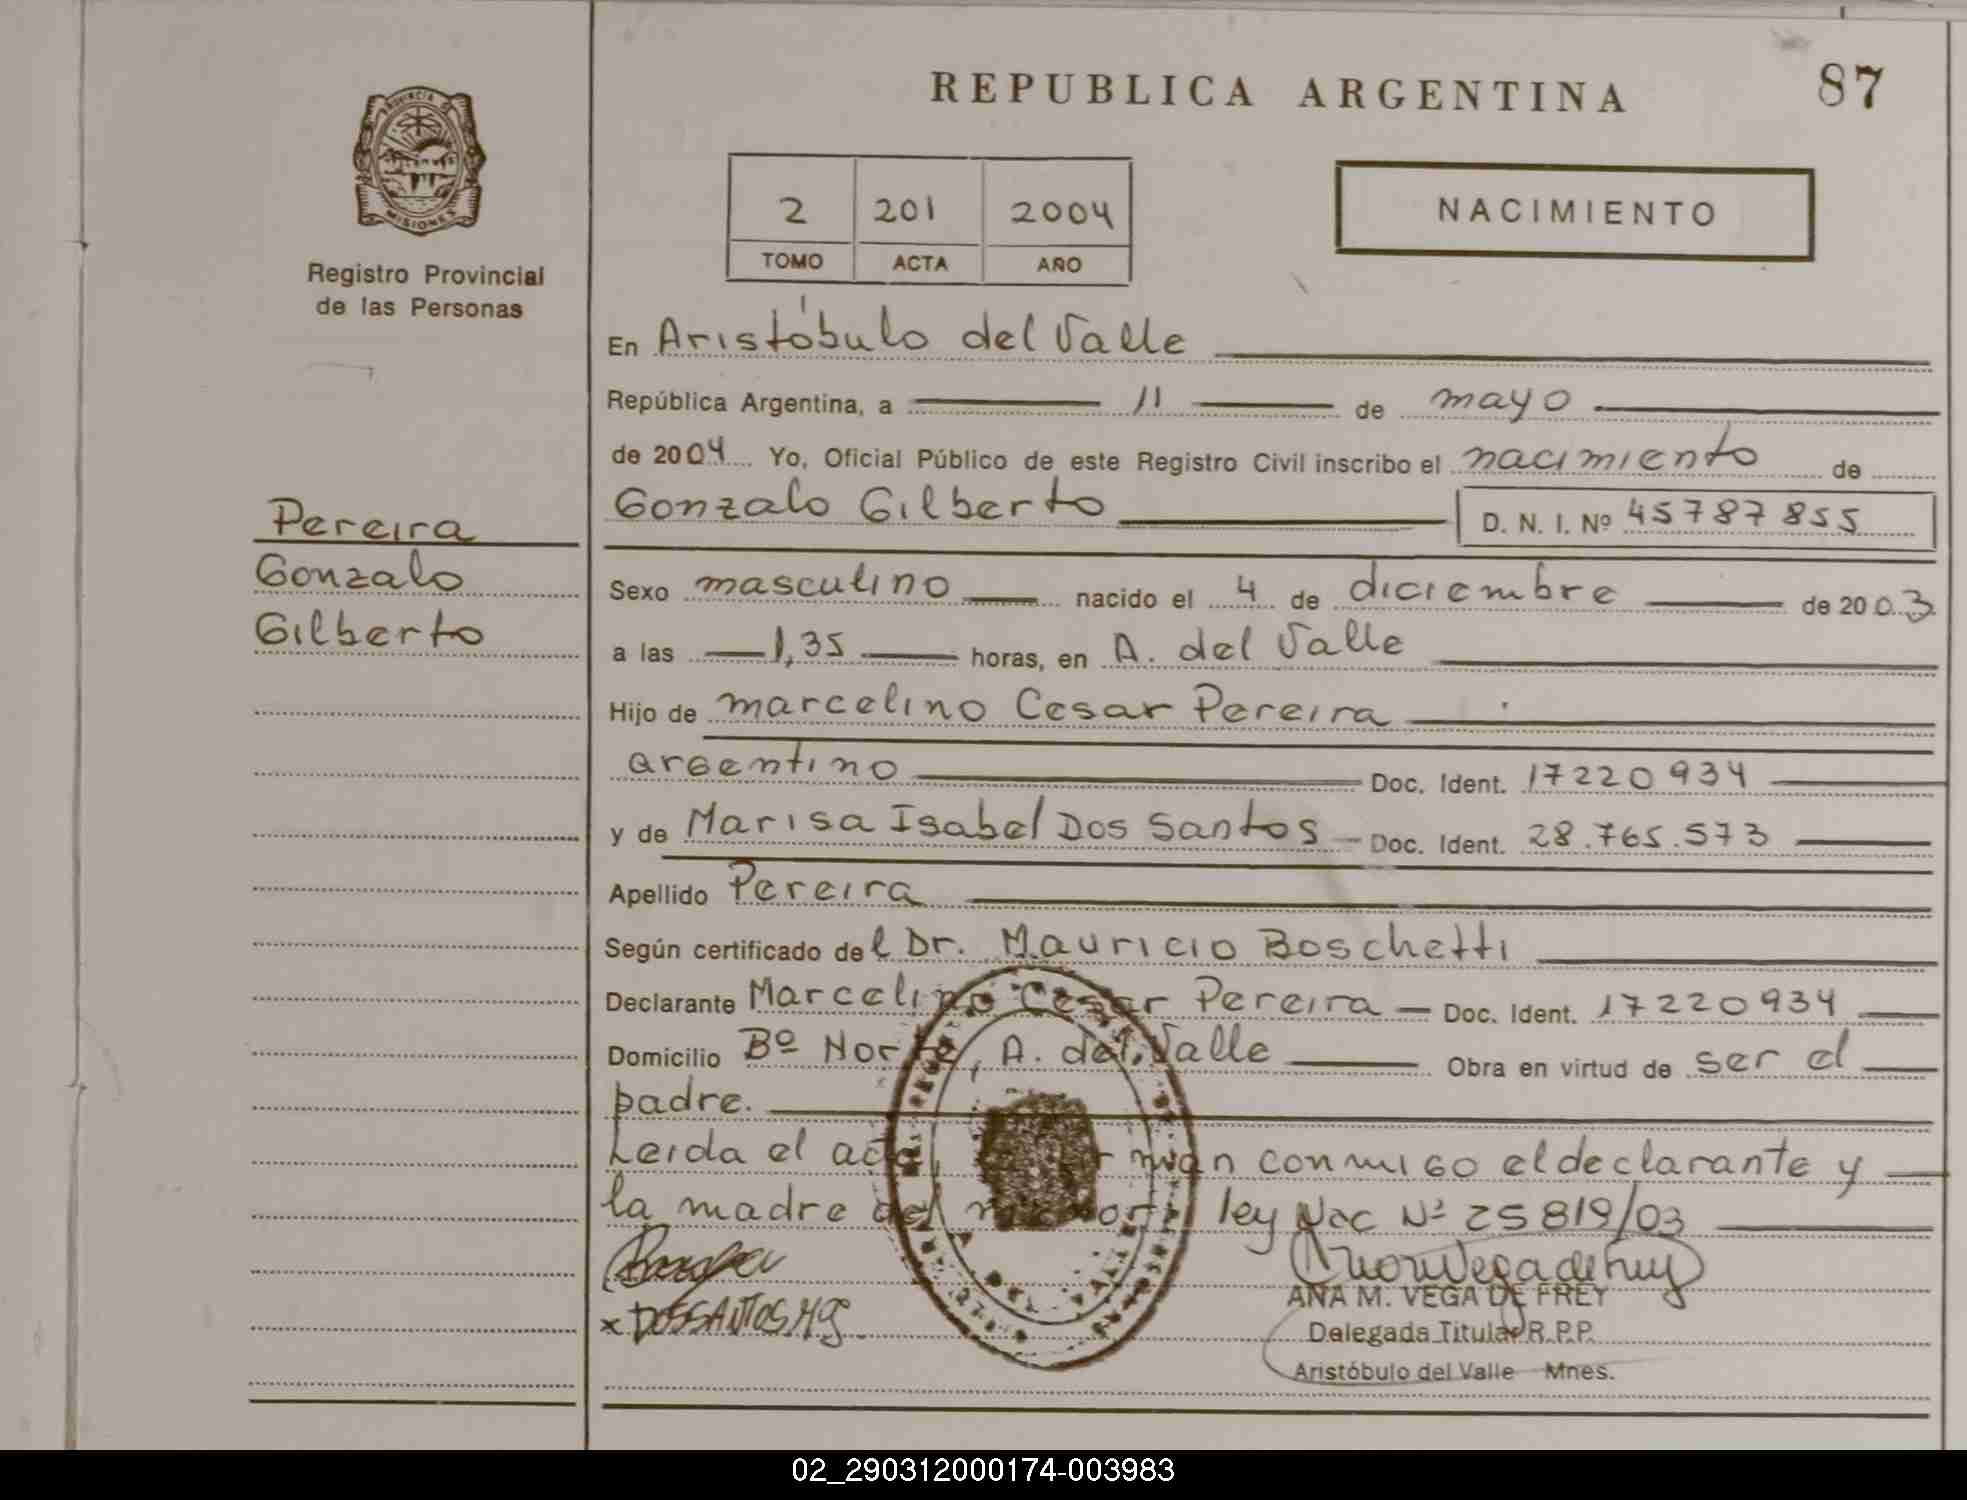 REPUBLICA ARGENTINA
87
PROVINCIA DE
MISIONES
Registro Provincial
de las Personas
2 201 2004
TOMO ACTA AÑO
NACIMIENTO
En Aristóbulo del Valle
República Argentina, a 11 de mayo
de 2004 Yo, Oficial Público de este Registro Civil inscribo el nacimiento de
Gonzalo Gilberto D. N. I. Nº 45787855
Pereira
Gonzalo
Gilberto
Sexo masculino nacido el 4 de diciembre de 2003
a las 1,35 horas, en A. del Valle
Hijo de Marcelino Cesar Pereira
argentino Doc. Ident. 17220934
y de Marisa Isabel Dos Santos Doc. Ident. 28.765.573
Apellido Pereira
Según certificado del Dr. Mauricio Boschetti
Declarante Marcelino Cesar Pereira Doc. Ident. 17220934
Domicilio Bº Norte, A. del Valle Obra en virtud de ser el
padre.
Leida el acta, conmigo el declarante y
la madre del menor. ley Nac Nº 25819/03
x DOSSANTOS
ANA M. VEGA DE FREY
Delegada Titular R.P.P.
Aristóbulo del Valle Mnes.
02_290312000174-003983